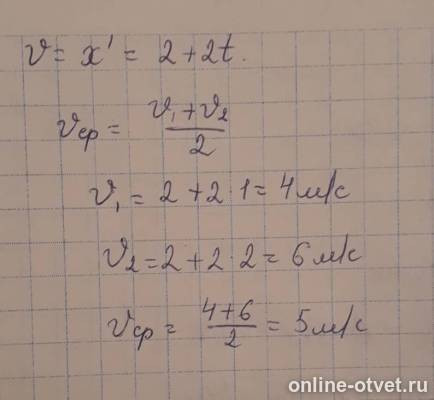 v = x' = 2 + 2t.
vср = (v₁ + v₂)/2
v₁ = 2 + 2·1 = 4 м/с
v₂ = 2 + 2·2 = 6 м/с
vср = (4+6)/2 = 5 м/с
online-otvet.ru